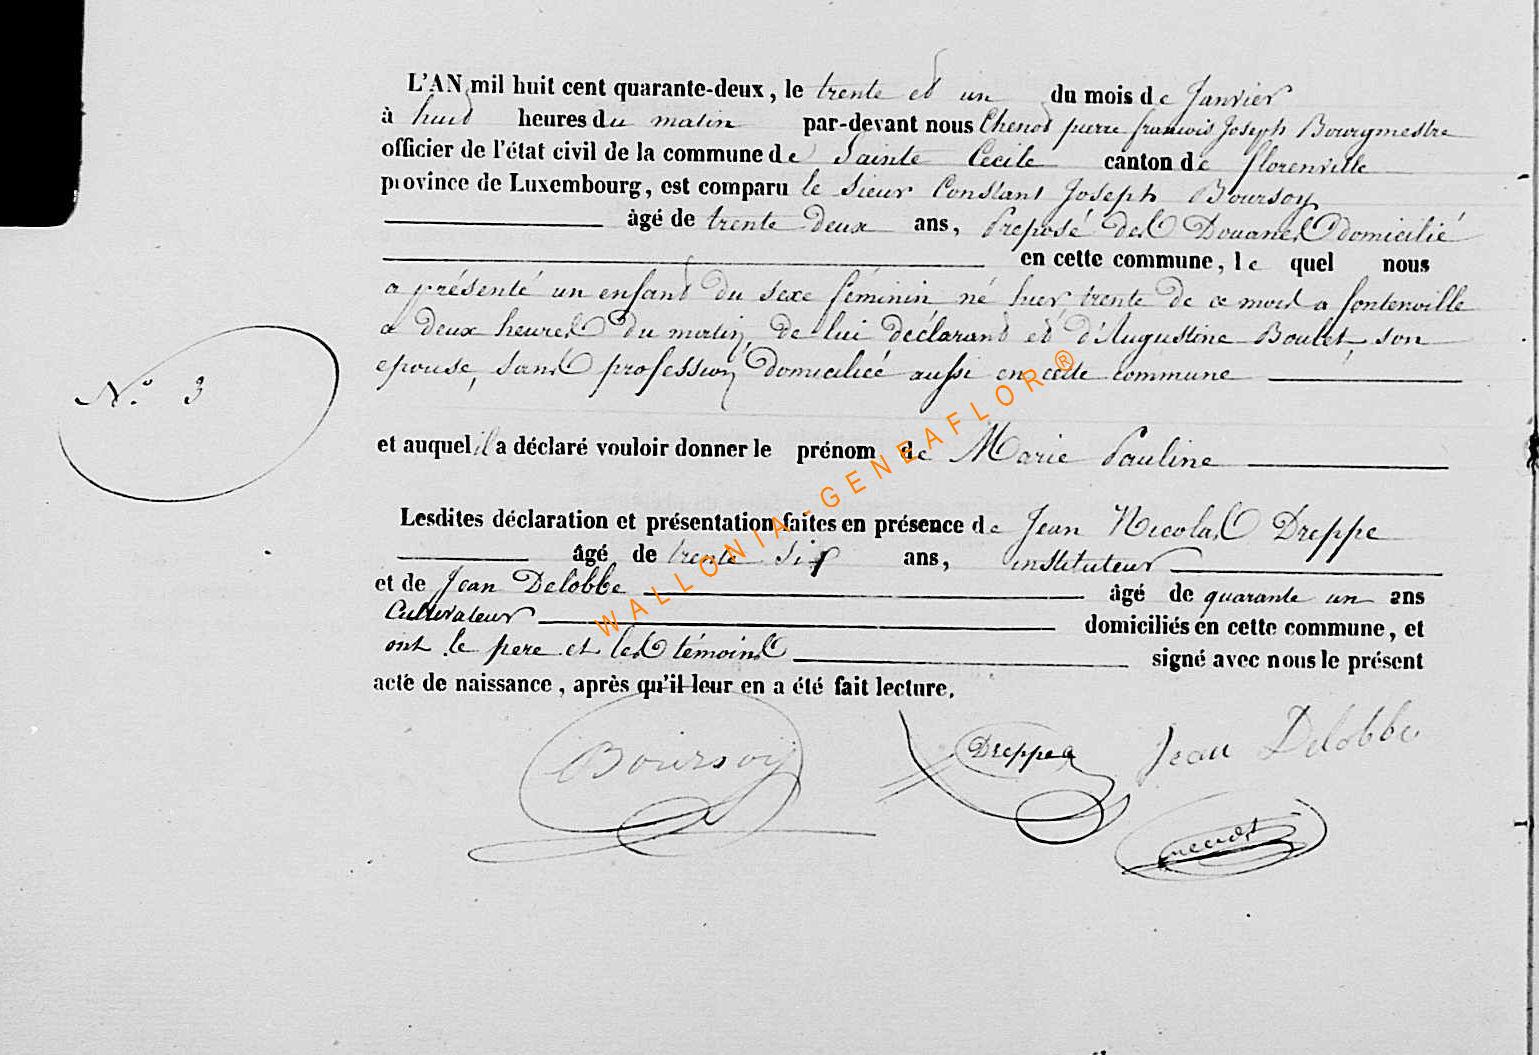 L'AN mil huit cent quarante-deux, le trente et un du mois de Janvier
à huit heures du matin par-devant nous Chenot pierre françois Joseph Bourgmestre
officier de l'état civil de la commune de Sainte Cecile canton de florenville
province de Luxembourg, est comparu le sieur Constant Joseph Boursoy
âgé de trente deux ans, Preposé des Douanes domicilié
en cette commune, le quel nous
a présenté un enfant du sexe féminin né hier trente de ce mois a fontenville
a deux heures du matin, de lui déclarant et d'Augustine Boulet, son
epouse, sans profession domiciliée aussi en cette commune
N.° 3
et auquel il a déclaré vouloir donner le prénom de Marie Pauline
Lesdites déclaration et présentation faites en présence de Jean Nicolas Dreppe
âgé de trente six ans, instituteur
et de Jean Delobbe âgé de quarante un ans
Cultivateur domiciliés en cette commune, et
ont le pere et les témoins signé avec nous le présent
acte de naissance, après qu'il leur en a été fait lecture.
Boursoy Dreppe Jean Delobbe
Chenot
WALLONIA-GENEAFLOR®